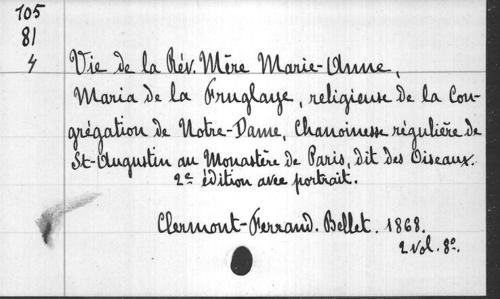 105
81
4
Vie de la Rév. Mère Marie-Anne,
Maria de la Fruglaye, religieuse de la Con-
grégation de Notre-Dame, Chanoinesse régulière de
St-Augustin au Monastère de Paris, dit des Oiseaux.
2e édition avec portrait.
Clermont-Ferrand. Bellet. 1868.
2 vol. 8o.